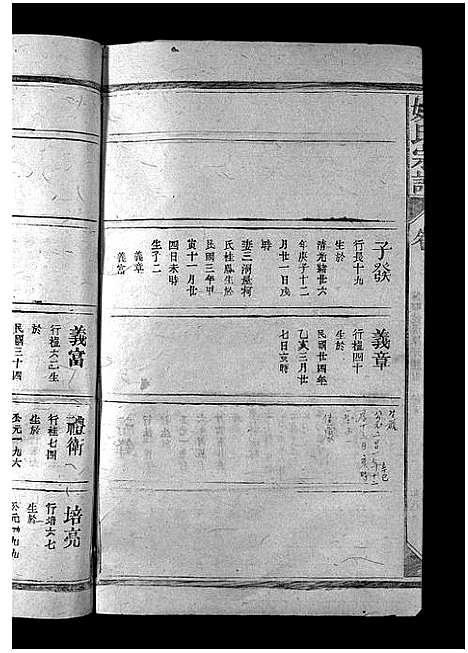 氏宗譜
子發
行長十九
生於
清光緒廿六
年庚子十二
月廿一日戌
時
妻三洞壟柯
氏桂鳳生於
民國三年甲
寅十一月廿
四日未時
生子二
義章
義富
義章
行楹四十
生於
民國廿四年
乙亥三月廿
七日亥時
義富
行楹六二生
於
民國三十四
禮衛
行桂七四
生於
公元一九六
培亮
行培六七
生於
公元一九九